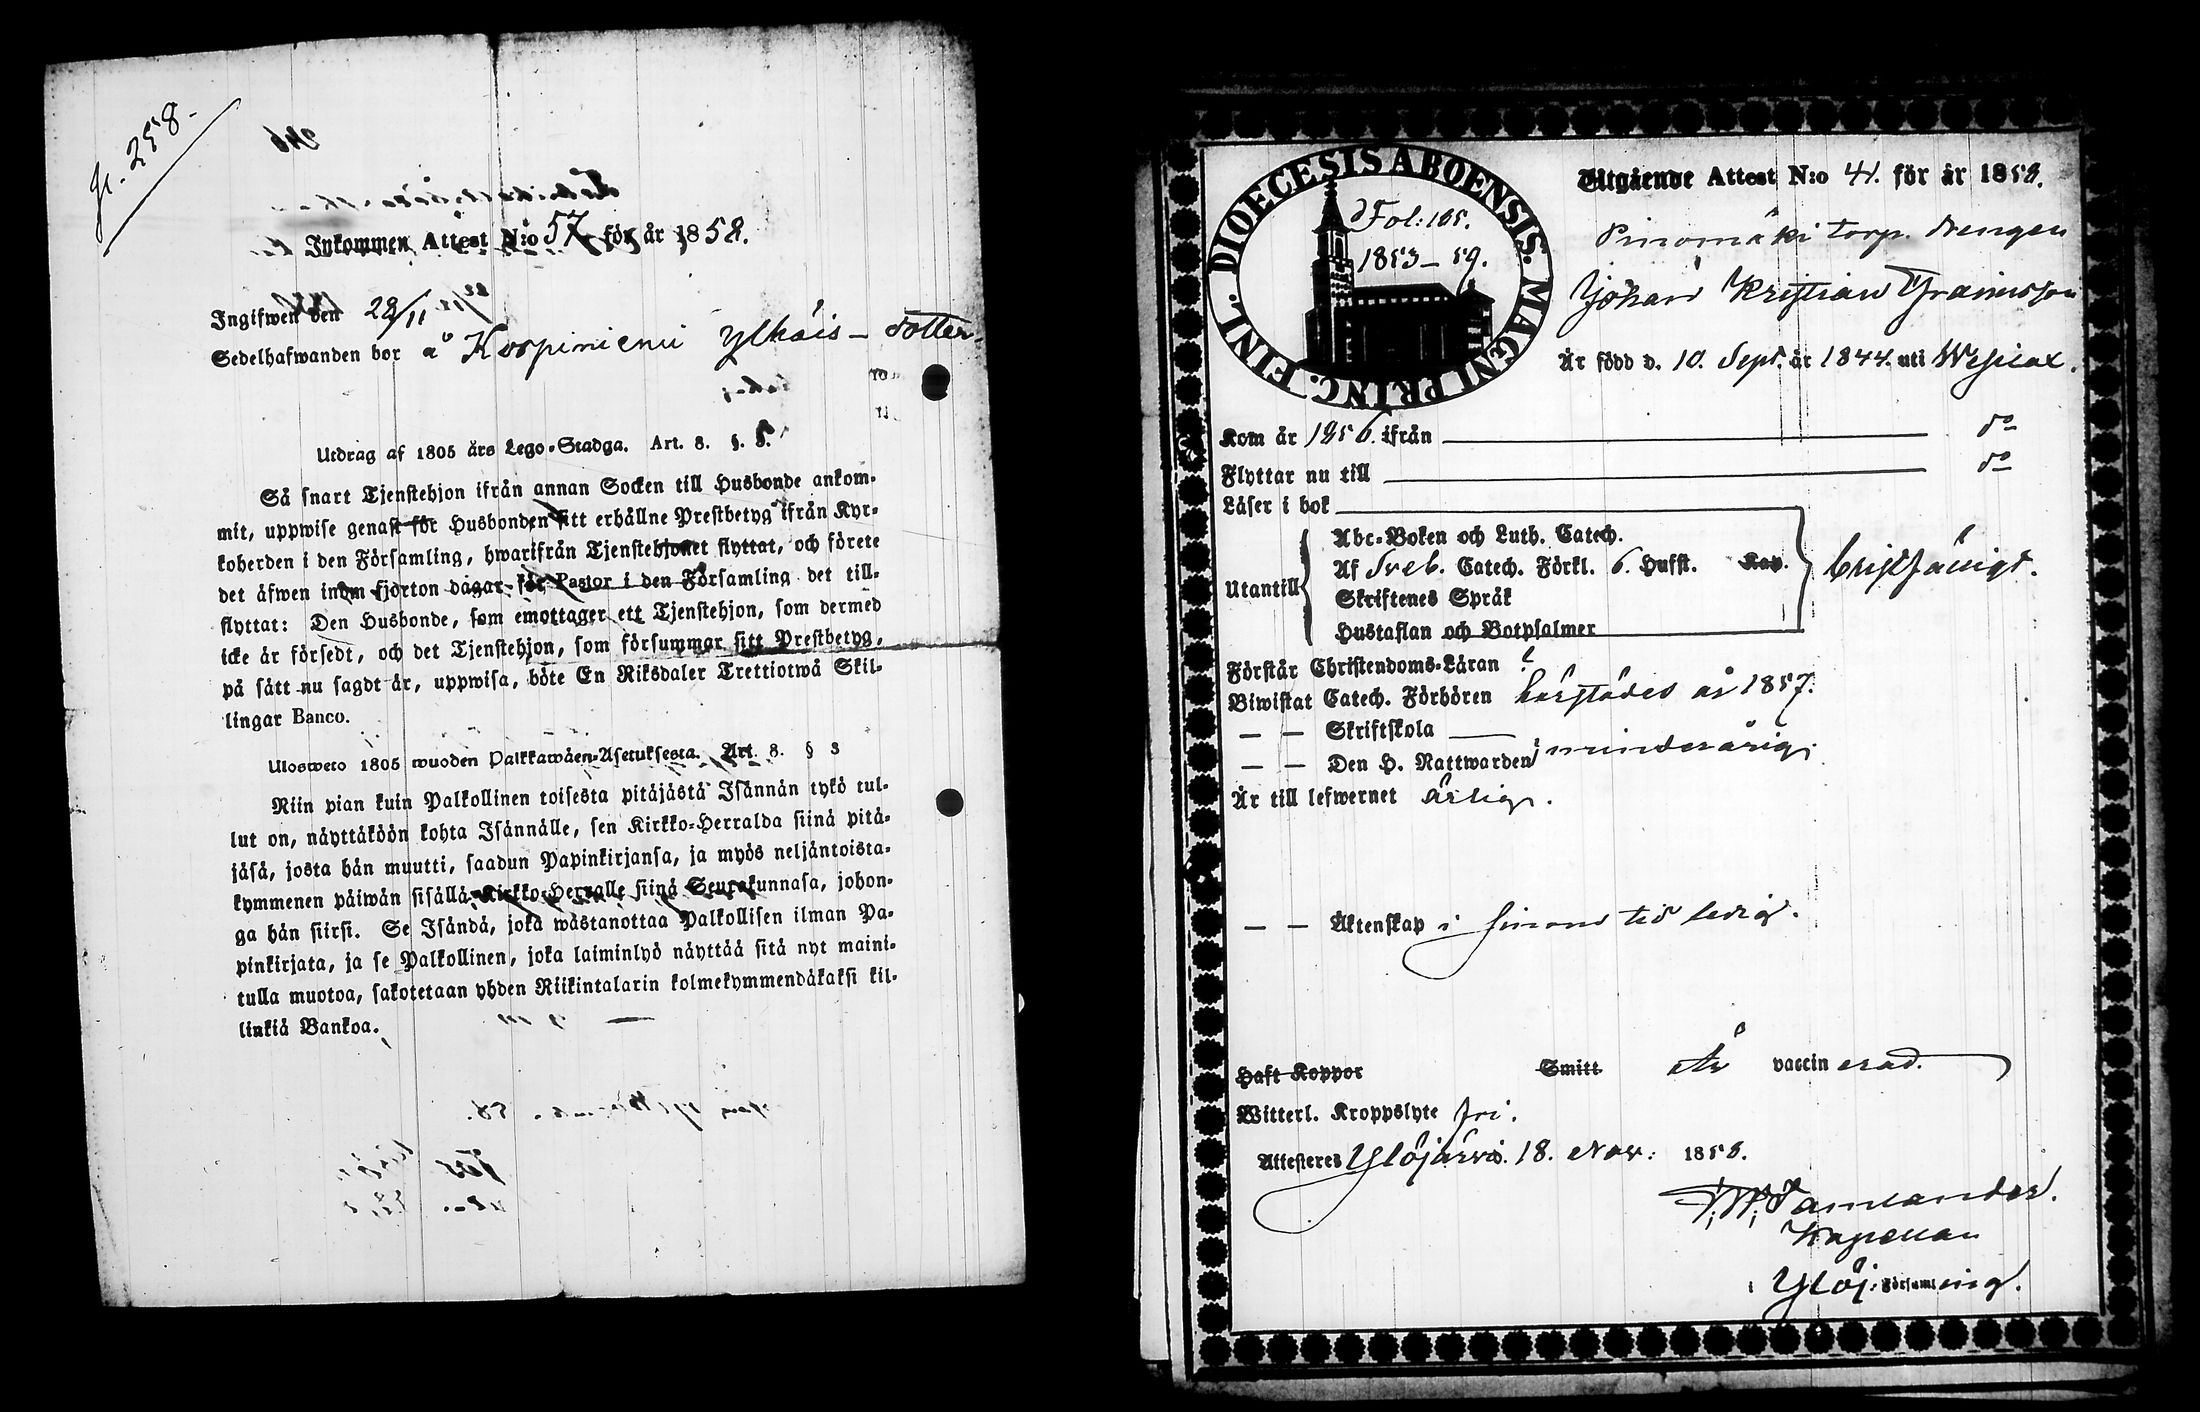 fr. 258.
Inkommen Attest N:o 57 för år 1858.
Ingifwen den 28/11
Sedelhafwanden bor å Korpiniemi Ylhäis-
Utdrag af 1805 års Lego-Stadga. Art. 8. §. 3.
Så snart Tjenstehjon ifrån annan Socken till Husbonde ankom-
mit, uppwise genast för Husbonden sitt erhållne Prestbetyg ifrån Kyr-
koherden i den Församling, hwarifrån Tjenstehjonet flyttat, och förete
det äfwen inom fjorton dagar för Pastor i den Församling det till-
flyttat: Den Husbonde, som emottager ett Tjenstehjon, som dermed
icke är försedt, och det Tjenstehjon, som försummar sitt Prestbetyg,
på sätt nu sagdt är, uppwisa, böte En Riksdaler Trettiotwå Skil-
lingar Banco.
Ulosweto 1805 wuoden Palkkawäen-Asetuksesta. Art. 8. § 3
Niin pian kuin Palkollinen toisesta pitäjästä Isännän tykö tul-
lut on, näyttäköön kohta Isännälle, sen Kirkko-Herralda siinä pitä-
jäsä, josta hän muutti, saadun Papinkirjansa, ja myös neljäntoista-
kymmenen päiwän sisällä Kirkko-Herralle siinä Seurakunnasa, johon-
ga hän siirsi. Se Isändä, joka wastanottaa Palkollisen ilman Pa-
pinkirjata, ja se Palkollinen, joka laiminlyö näyttää sitä nyt maini-
tulla muotoa, sakotetaan yhden Riikintalarin kolmekymmendäkaksi kil-
linkiä Bankoa.
DIOECESIS ABOENSIS. MAGNI PRINC. FINL.
Fol: 105.
1853-59.
Utgående Attest N:o 41. för år 1858.
Pinomäki torp. drengen
Johan Kristian Fransson
Är född d. 10. Sept. år 1844. uti Wesilax.
Kom år 1856. ifrån do
Flyttar nu till do
Läser i bok
Utantill
Abc-Boken och Luth. Catech.
Af Sveb. Catech. Förkl. 6. Hufst. Kap.
Skriftenes Språk
Hustaflan och Botpsalmer
bristfälligt.
Förstår Christendoms-Läran
Biwistat Catech. Förhören härstädes år 1857.
— — Skriftskola
— — Den H. Nattwarden minderårig.
Är till lefwernet ärlig.
— — Äktenskap i sinom tid ledig.
Haft Koppor Smitt Är vaccinerad.
Witterl. Kroppslyte fri.
Attesteres Ylöjärwi. 18. Nov: 1858.
Kapellan
i Ylöj. Församling.